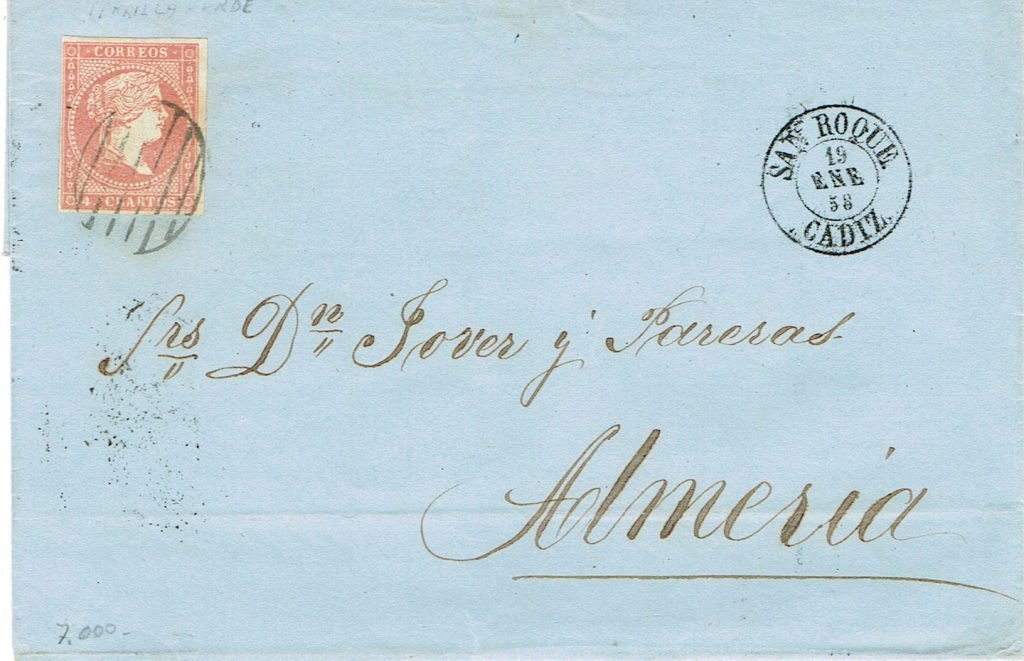 CORREOS
4 CUARTOS
SAN ROQUE
19
ENE
58
CADIZ
Srs Dn Jover y Pareras
Almeria
7.000-